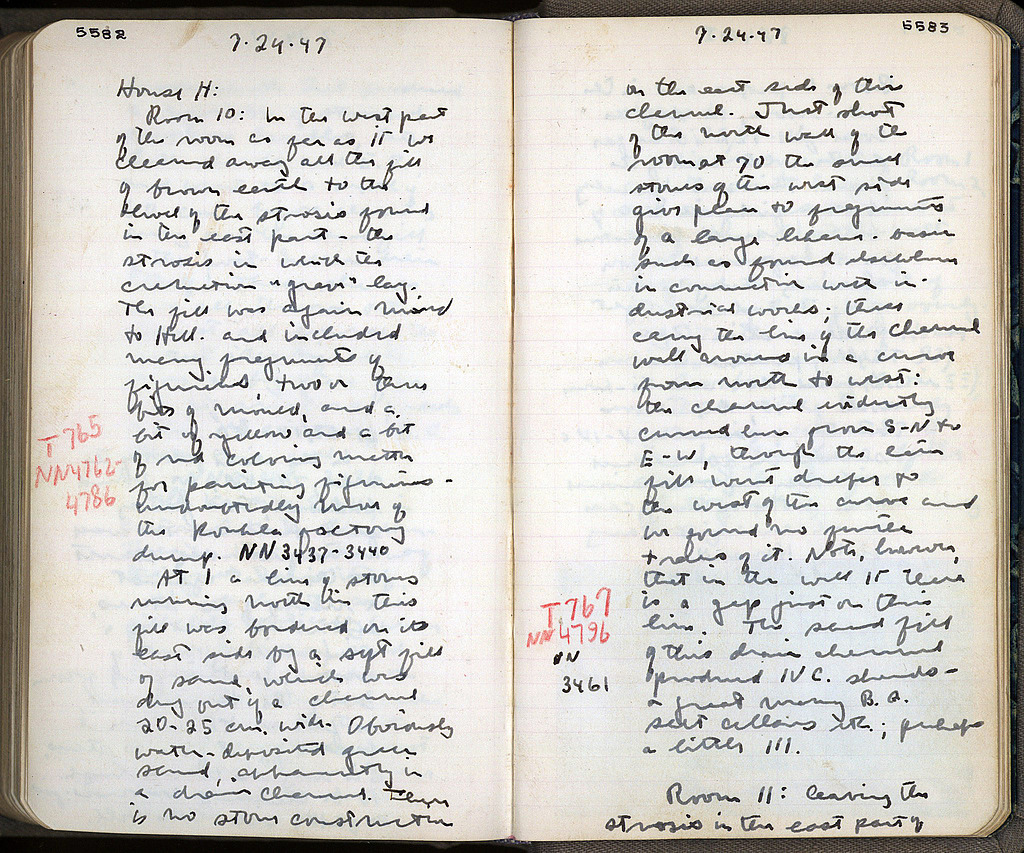 5582
7-24-47
House H:
Room 10: In the west part
of the room as far as 15 we
cleaned away all the fill
of brown earth to the
level of the strosis found
in the east part - the
strosis in which the
cremation "grave" lay.
The fill was again mixed
to Hell. and included
many fragments of
figurines two or three
bits of mould, and a
bit of yellow and a bit
of red coloring matter
for painting figurines -
undoubtedly more of
the Koukla factory
dump. NN 3437-3440
T 765
NN4762-
4786
At 1 a line of stones
running north in this
fill was bordered on its
east side by a soft fill
of sand, which was
dug out of a channel
20-25 cm. wide. Obviously
water-deposited green
sand, apparently in
a drain channel. There
is no stone construction
5583
7-24-47
on the east side of this
channel. Just short
of the north wall of the
room at 70 the small
stones of the west side
give place to fragments
of a large lekane-basin
such as found elsewhere
in connection with in-
dustrial works; these
carry the line of the channel
wall around in a curve
from north to west:
the channel evidently
curved here from S-N to
E-W, though the later
fill went deeper to
the west of the curve and
we found no further
traces of it. Note, however,
that in the wall 15 there
is a gap just on this
line. The sand fill
of this drain channel
produced IV C. sherds -
a great many B.G.
salt cellars etc.; perhaps
a little III.
T.767
NN 4796
NN
3461
Room 11: leaving the
strosis in the east part of